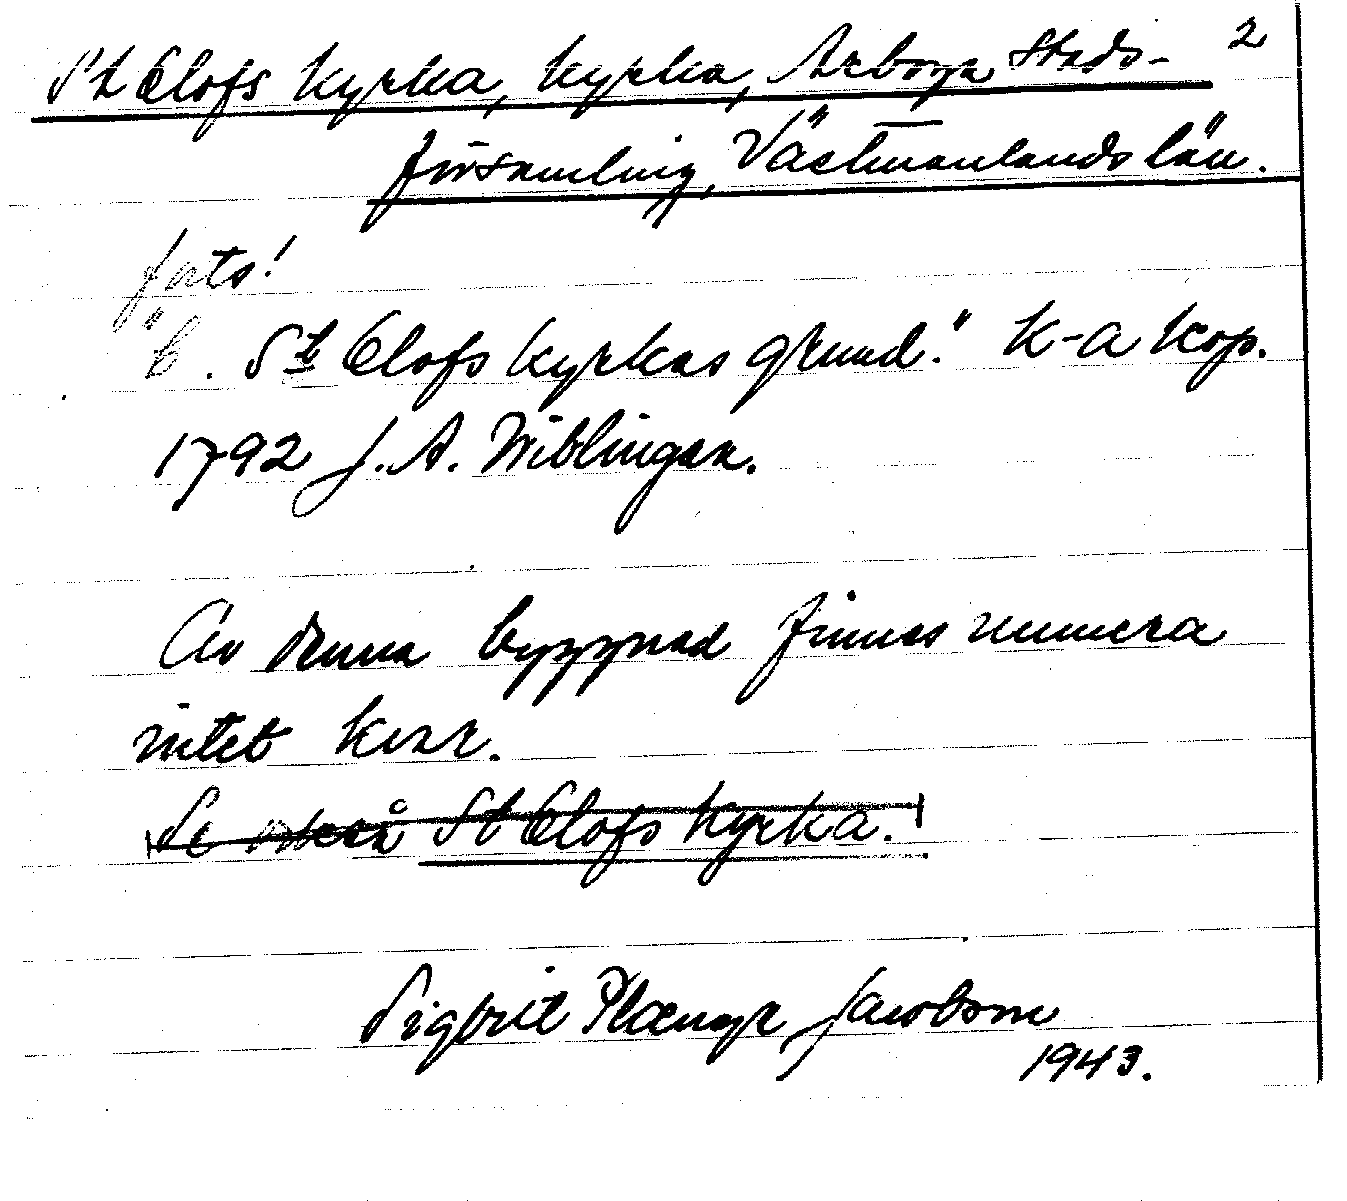 St Olofs kyrka, kyrka, Arboga stads- 2
församling, Västmanlands län.
fots!
"b. St Olofs kyrkas grund." K-a kop.
1792 J. A. Wiblingen.
Av denna byggnad finnes numera
intet kvar.
Se också St Olofs kyrka.
Sigbrit Plænge Jacobson
1943.